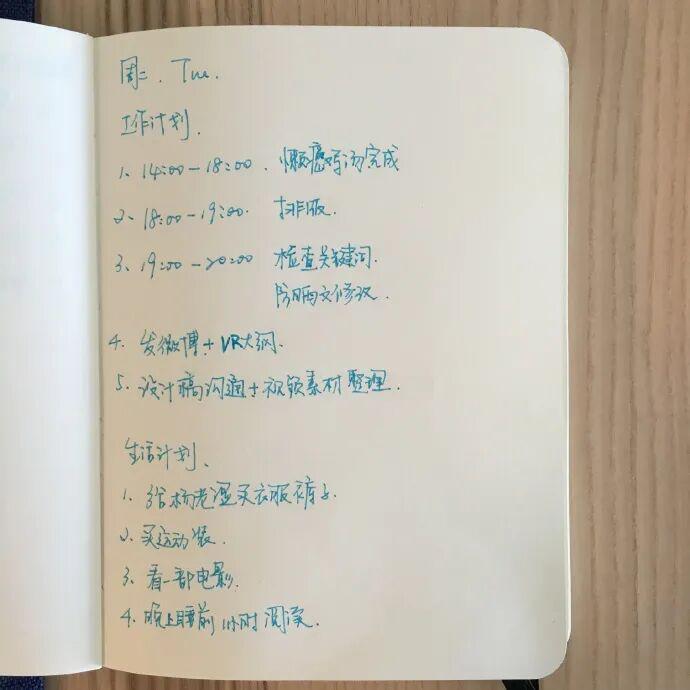 周二. Tue.
工作计划.
1、14:00-18:00. 懒癌鸡汤完成
2、18:00-19:00. 排版.
3、19:00-20:00 检查关键词.
防晒文修改.
4. 发微博+VR大纲.
5. 设计稿沟通+视频素材整理.
生活计划、
1. 给杨老湿买衣服裤子.
2、买运动装.
3. 看一部电影.
4. 晚上睡前1小时阅读.